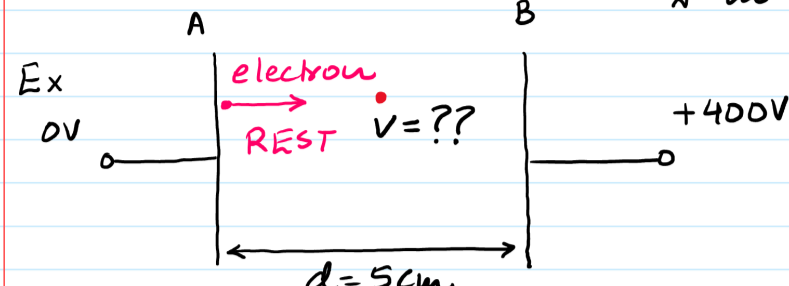 A
B
Ex
electron
0V
REST
V = ??
+400V
d = 5cm.